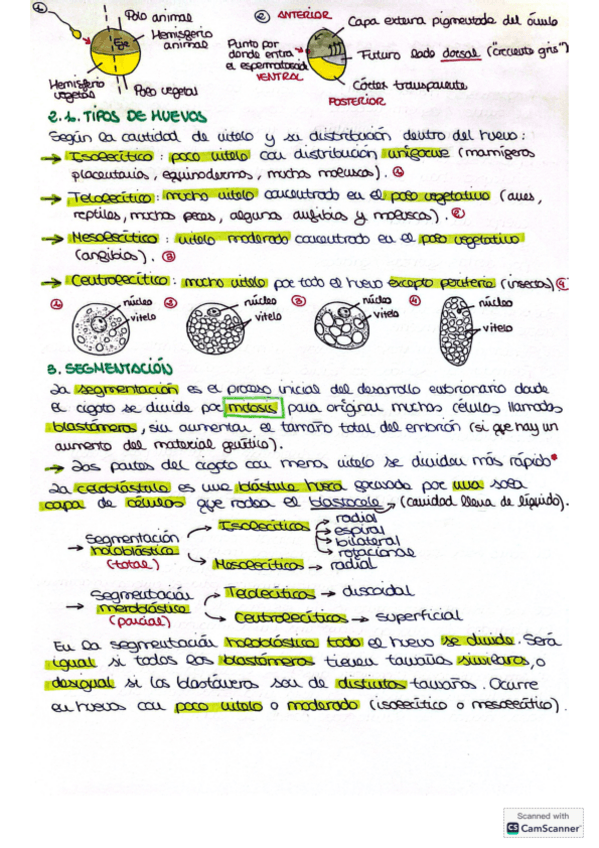 ① Polo animal
Eje
Hemisferio
animal
Hemisferio
vegetal
Polo vegetal
② ANTERIOR
Capa externa pigmentada del óvulo
Punto por
donde entra
el espermatozoide
VENTRAL
Futuro lado dorsal ("creciente gris")
Córtex transparente
POSTERIOR
2.1. TIPOS DE HUEVOS
Según la cantidad de vitelo y su distribución dentro del huevo:
→ Isolecítico: poco vitelo con distribución uniforme (mamíferos
placentarios, equinodermos, muchos moluscos). ①
→ Telolecítico: mucho vitelo concentrado en el polo vegetativo (aves,
reptiles, muchos peces, algunos anfibios y moluscos). ②
→ Mesolecítico: vitelo moderado concentrado en el polo vegetativo
(anfibios). ③
→ Centrolecítico: mucho vitelo por todo el huevo excepto periferia (insectos) ④
① núcleo vitelo
② núcleo vitelo
③ núcleo vitelo
④ núcleo vitelo
3. SEGMENTACIÓN
La segmentación es el proceso inicial del desarrollo embrionario donde
el cigoto se divide por mitosis para originar muchas células llamadas
blastómeros, sin aumentar el tamaño total del embrión (si que hay un
aumento del material genético).
→ Las partes del cigoto con menos vitelo se dividen más rápido*
La celoblástula es una blástula hueca formada por una sola
capa de células que rodea el blastocele → (cavidad llena de líquido).
→ Segmentación holoblástica (total)
→ Isolecíticos → radial
→ espiral
→ bilateral
→ rotacional
→ Mesolecíticos → radial
→ Segmentación meroblástica (parcial)
→ Telolecíticos → discoidal
→ Centrolecíticos → superficial
En la segmentación holoblástica todo el huevo se divide. Será
igual si todos los blastómeros tienen tamaños similares, o
desigual si los blastómeros son de distintos tamaños. Ocurre
en huevos con poco vitelo o moderado (isolecítico o mesolecítico).
Scanned with
CS CamScanner